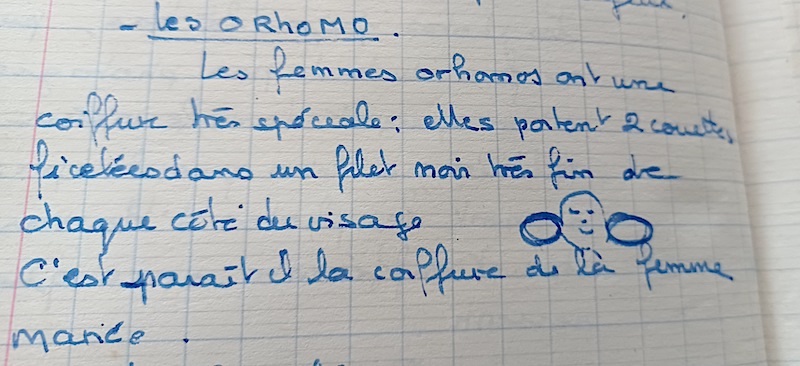 - les ORhOMO.
Les femmes orhomos ont une
coiffure très spéciale: elles portent 2 couettes
ficelées dans un filet noir très fin de
chaque côté du visage
C'est paraît il la coiffure de la femme
mariée.